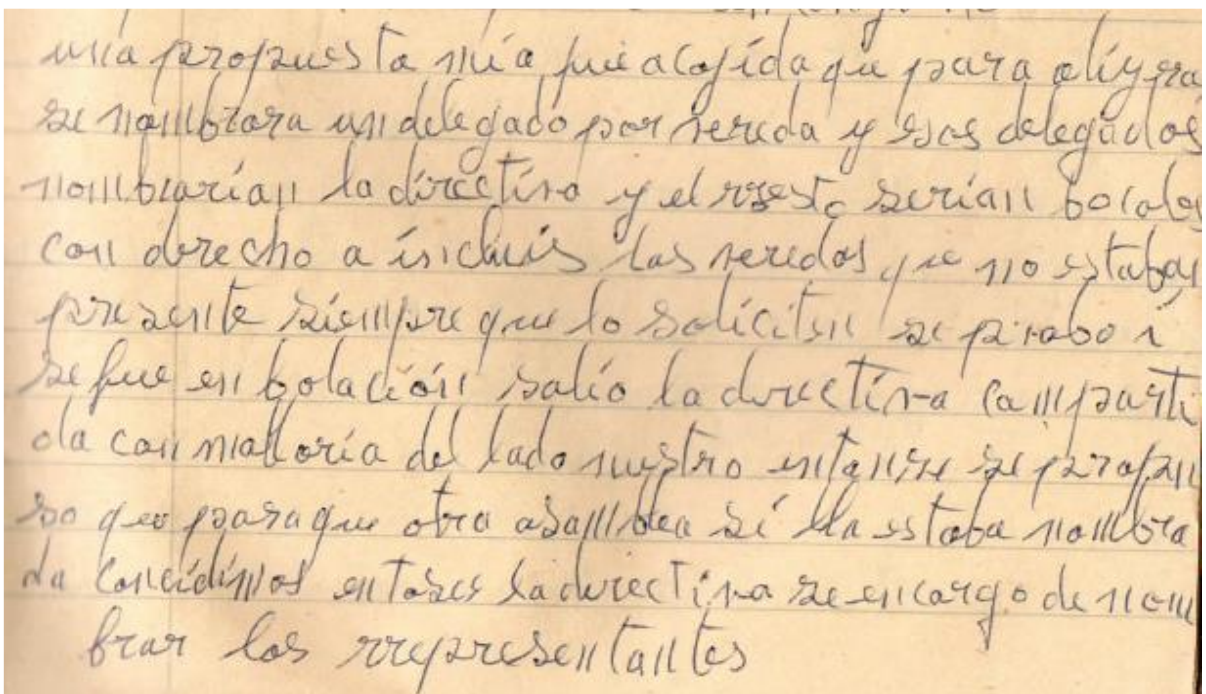 una propuesta mía fue acojida que para aligera
se nombrara un delegado por vereda y esos delegados
nombrarían la directiva y el rresto serían bocales
con derecho a incluir las veredas que no estaban
presente siempre que lo soliciten se probo i
se fue en botación salio la directiva comparti
da con malloría del lado nuestro entonse se propu
so que para que otra asamblea si lla estaba nombra
da concidimos entoses la directiva se encargo de nom
brar los rrepresentantes